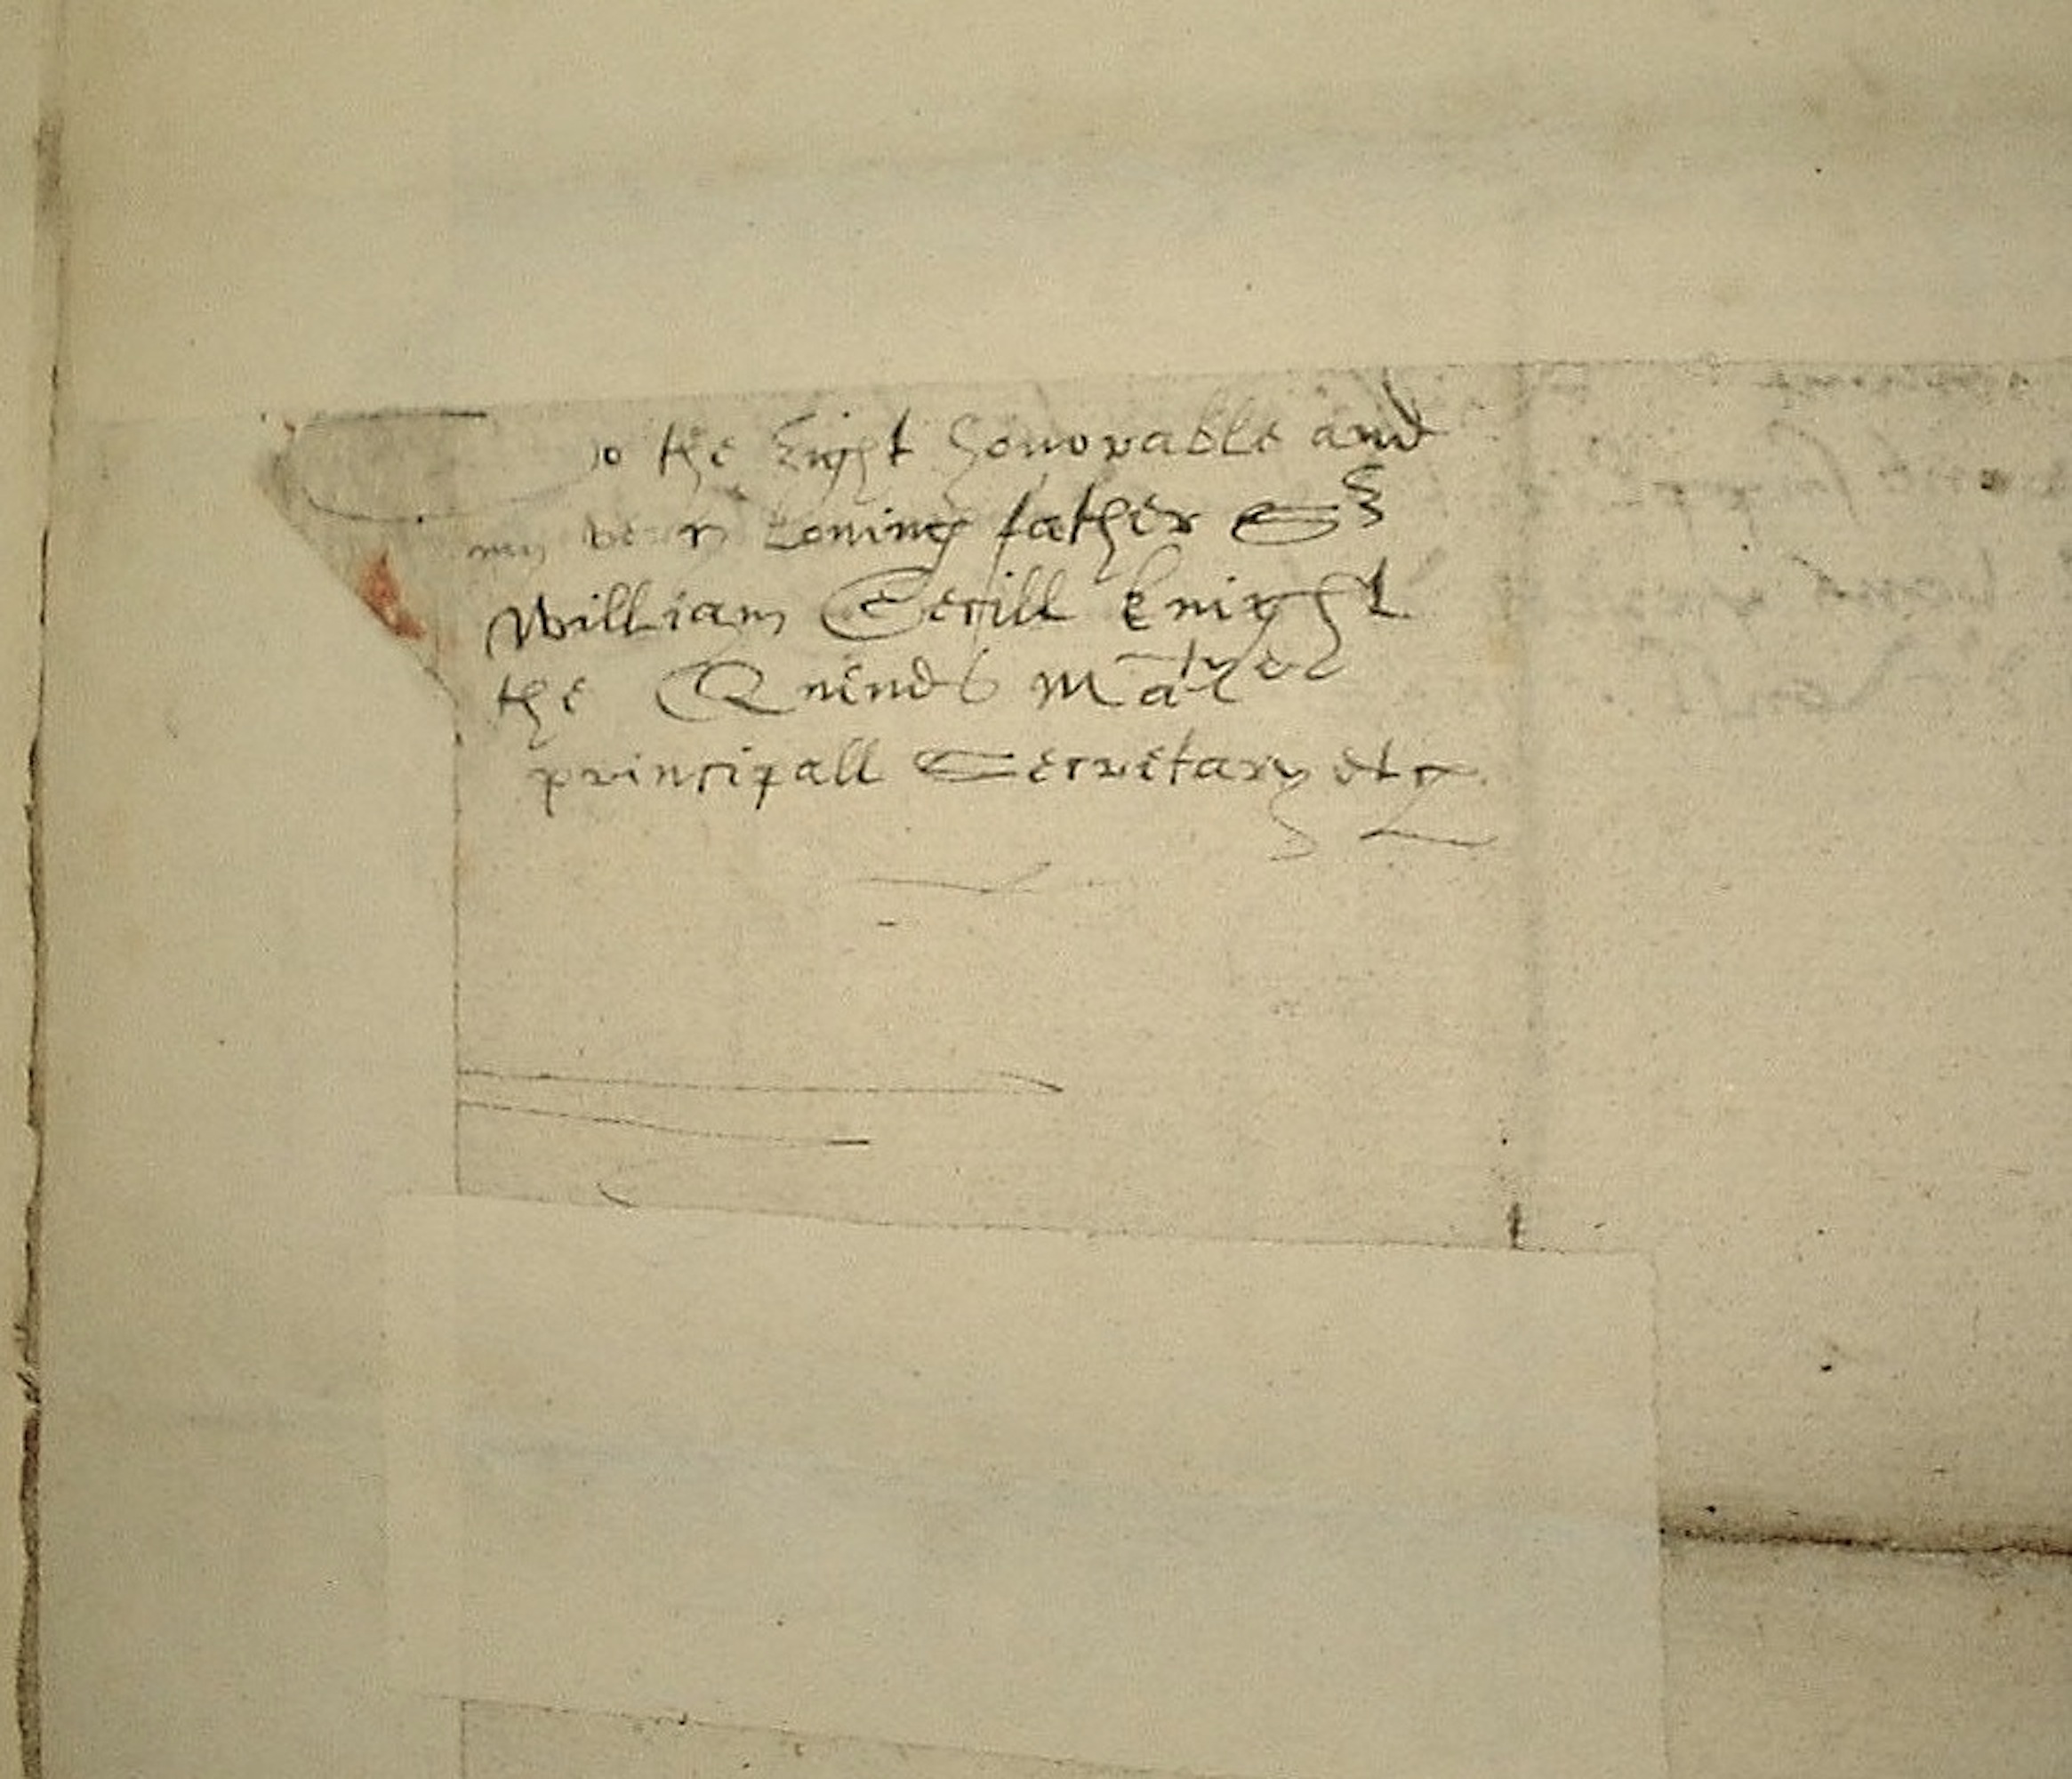 To the right honorable and
my very Loving father Sr
William Cecill knight
the Quenes Maties
principall Secretary etc